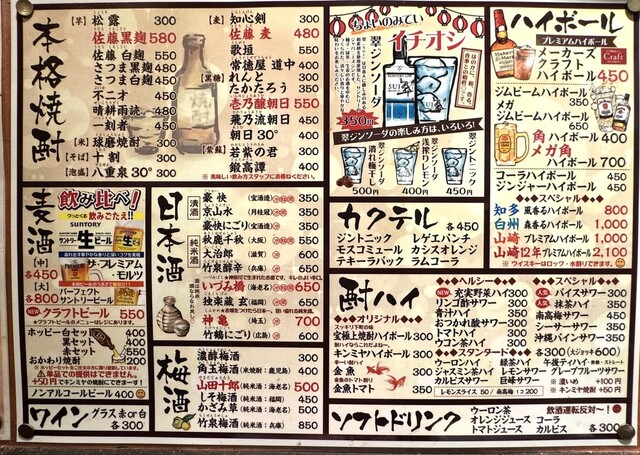 本格焼酎
【芋】松露 300
佐藤黒麹 580
佐藤白麹 550
さつま黒麹 480
さつま白麹 450
不二才 450
晴耕雨読 480
一刻者 450
【米】球磨焼酎 300
【そば】十割 300
【泡盛】八重泉30° 300
【麦】知心剣 300
佐藤麦 480
歌垣 550
常徳屋道中 400
【黒糖】れんと 300
たかたろう 350
壱乃醸朝日 550
飛乃流朝日 450
朝日30° 400
【紫蘇】若紫の君 300
鍛高譚 400
※ 美味しい飲み方スタッフにお尋ねください。
ちょいのみてい
イチオシ
翠ジンソーダ
350円
翠ジンソーダの楽しみ方は、いろいろ!
翠ジンソーダ 潰れ梅干し 500円
翠ジンソーダ 浅搾りレモン 400円
翠ジントニック 450円
ハイボール
プレミアムハイボール
メーカーズ
クラフト
ハイボール 450
ジムビームハイボール 350
メガ
ジムビームハイボール 600
角ハイボール 400
メガ角
ハイボール 700
コーラハイボール 400
ジンジャーハイボール 400
スペシャル
知多 風香るハイボール 800
白州 森香るハイボール 1,000
山崎 プレミアムハイボール 1,000
山崎12年 プレミアムハイボール 2,100
※ウイスキーはロック・水割りでできます!
カクテル 各450
ジントニック レゲエパンチ
モスコミュール カシスオレンジ
テキーラバック ラムコーラ
麦酒
飲み比べ!
グッとくる 飲みごたえ!!
SUNTORY
サントリー 生ビール
ザ・プレミアム・モルツ
【中】各450
【大】各800
パーフェクト
サントリービール
NEW クラフトビール 550
★クラフトビールのメニューはレジにあります。
ホッピーセット
黒セット 500
赤セット 550
おかわり焼酎 200
単品での提供はできません!
+50円でキンミヤの焼酎にできます!
ノンアルコールビール 400
日本酒
清酒
純米酒
豪快 (宝酒造) 350
京山水 (月桂冠) 300
豪快にごり (宝酒造) 350
秋鹿千秋 (大阪) 550
大治郎 (滋賀) 600
竹泉醇辛 (兵庫) 650
いづみ橋 (海老名) 650
独楽蔵玄 (福岡) 650
神亀 (埼玉) 700
竹鶴にごり (広島) 600
梅酒
濃醇梅酒 300
角玉梅酒 (米焼酎:鹿児島) 400
山田十郎 (純米酒:海老名) 500
しそ梅酒 (純米酒:福岡) 450
かざみ草 (純米酒:海老名) 500
竹泉梅酒 (純米酒:兵庫) 850
ワイン グラス 赤or白 各300
酎ハイ
オリジナル
スッキリ下町の味
宝極上焼酎ハイボール 300
キンミヤハイボール 350
金魚 350
金魚トマト 350
ヘルシー
NEW 充実野菜ハイ 350
リンゴ酢サワー 300
青汁ハイ 300
おつかれ酸サワー 300
トマトハイ 300
ウコン茶ハイ 300
スペシャル
人気 バイスサワー 350
人気 抹茶ハイ 350
南高梅サワー 350
シーサーサワー 350
沖縄パインサワー 350
スタンダード 各300(大ジョッキ600)
ウーロンハイ 緑茶ハイ 午後ティハイ(無糖・ストレート)
ジャスミン茶ハイ レモンサワー グレープフルーツサワー
カルピスサワー 巨峰サワー
※濃いめ +100円
※キンミヤ焼酎 +50円
レモンスライス 50 / 南高梅 1コ 200
ソフトドリンク 各300
ウーロン茶 飲酒運転反対ー!
オレンジジュース コーラ
トマトジュース カルピス 各300